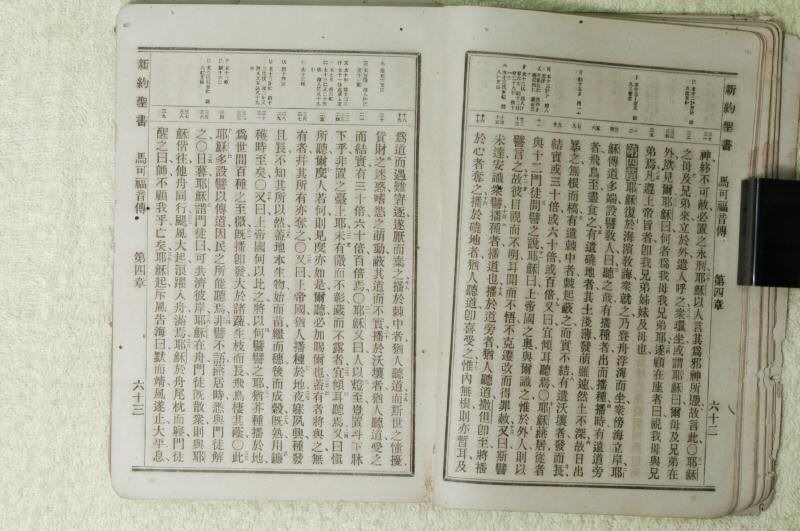 新約聖書 馬可福音傳 第四章 六十二
神終不可赦必置之永刑耶穌以人言其爲邪神所憑故言此〇耶穌
之母及兄弟來立於外遣人呼之衆環坐或謂耶穌曰爾母及兄弟在
外欲見爾耶穌曰何者爲我母我兄弟耶遂顧在座者曰視我母與兄
弟焉凡遵上帝旨者卽我兄弟姊妹及母也
第四章 耶穌復於海濱教誨衆就之乃登舟浮海而坐衆傍海立岸耶
穌傳道多端設譬教人曰聽之哉有播種者出而播種播時有遺道旁
者飛鳥至盡食之有遺磽地者其土淺薄發萌雖速然土不深故日出
暴之無根而槁有遺棘中者棘起蔽之而實不結有遺沃壤者發而長
結實或三十倍或六十倍或百倍又曰宜傾耳聽焉〇耶穌燕居從者
與十二門徒問譬之說耶穌曰上帝國之奧與爾識之惟於外人則以
譬言之故彼目視而不明耳聞而不悟不克遷改而得罪赦又曰斯譬
未達安識衆譬播種者播道也播於道旁者猶人聽道撒但卽至將播
於心者奪之播於磽地者猶人聽道卽喜受之惟內無根則亦暫耳及
爲道而遇難窘逐遂厭而棄之播於棘中者猶人聽道而斯世之憧擾
貨財之迷惑嗜慾之萌動蔽其道而不實播於沃壤者猶人聽道受之
而結實有三十倍六十倍百倍焉〇耶穌又曰人以燈至豈置斗下牀
下乎非置之臺上耶未有微而不彰藏而不露者宜傾耳聽焉又曰愼
所聽爾度人若何則見度亦如是爾聽必加賜爾也蓋有者將與之無
有者幷其所有亦奪之〇又曰上帝國猶人播種於地夜寐夙興種發
且長不知其所以然蓋地本生物始而苗繼而穗後而成穀旣熟用鐮
穡時至矣〇又曰上帝國何以比之將以何譬譬之耶猶芥種播於地
爲世間百種之至微旣播卽發大於諸蔬生枝而長飛鳥棲其蔭〇此
耶穌多設譬以傳道因民之所能聽焉非譬不語燕居時悉與門徒解
之〇日暮耶穌謂門徒曰可共濟彼岸耶穌在舟門徒旣散衆則與耶
穌偕往他舟同行颶風大起浪躍入舟滿焉耶穌於舟尾枕而寢門徒
醒之曰師不顧我乎亡矣耶穌起斥風告海曰默而靖風遂止大平息
新約聖書 馬可福音傳 第四章 六十三